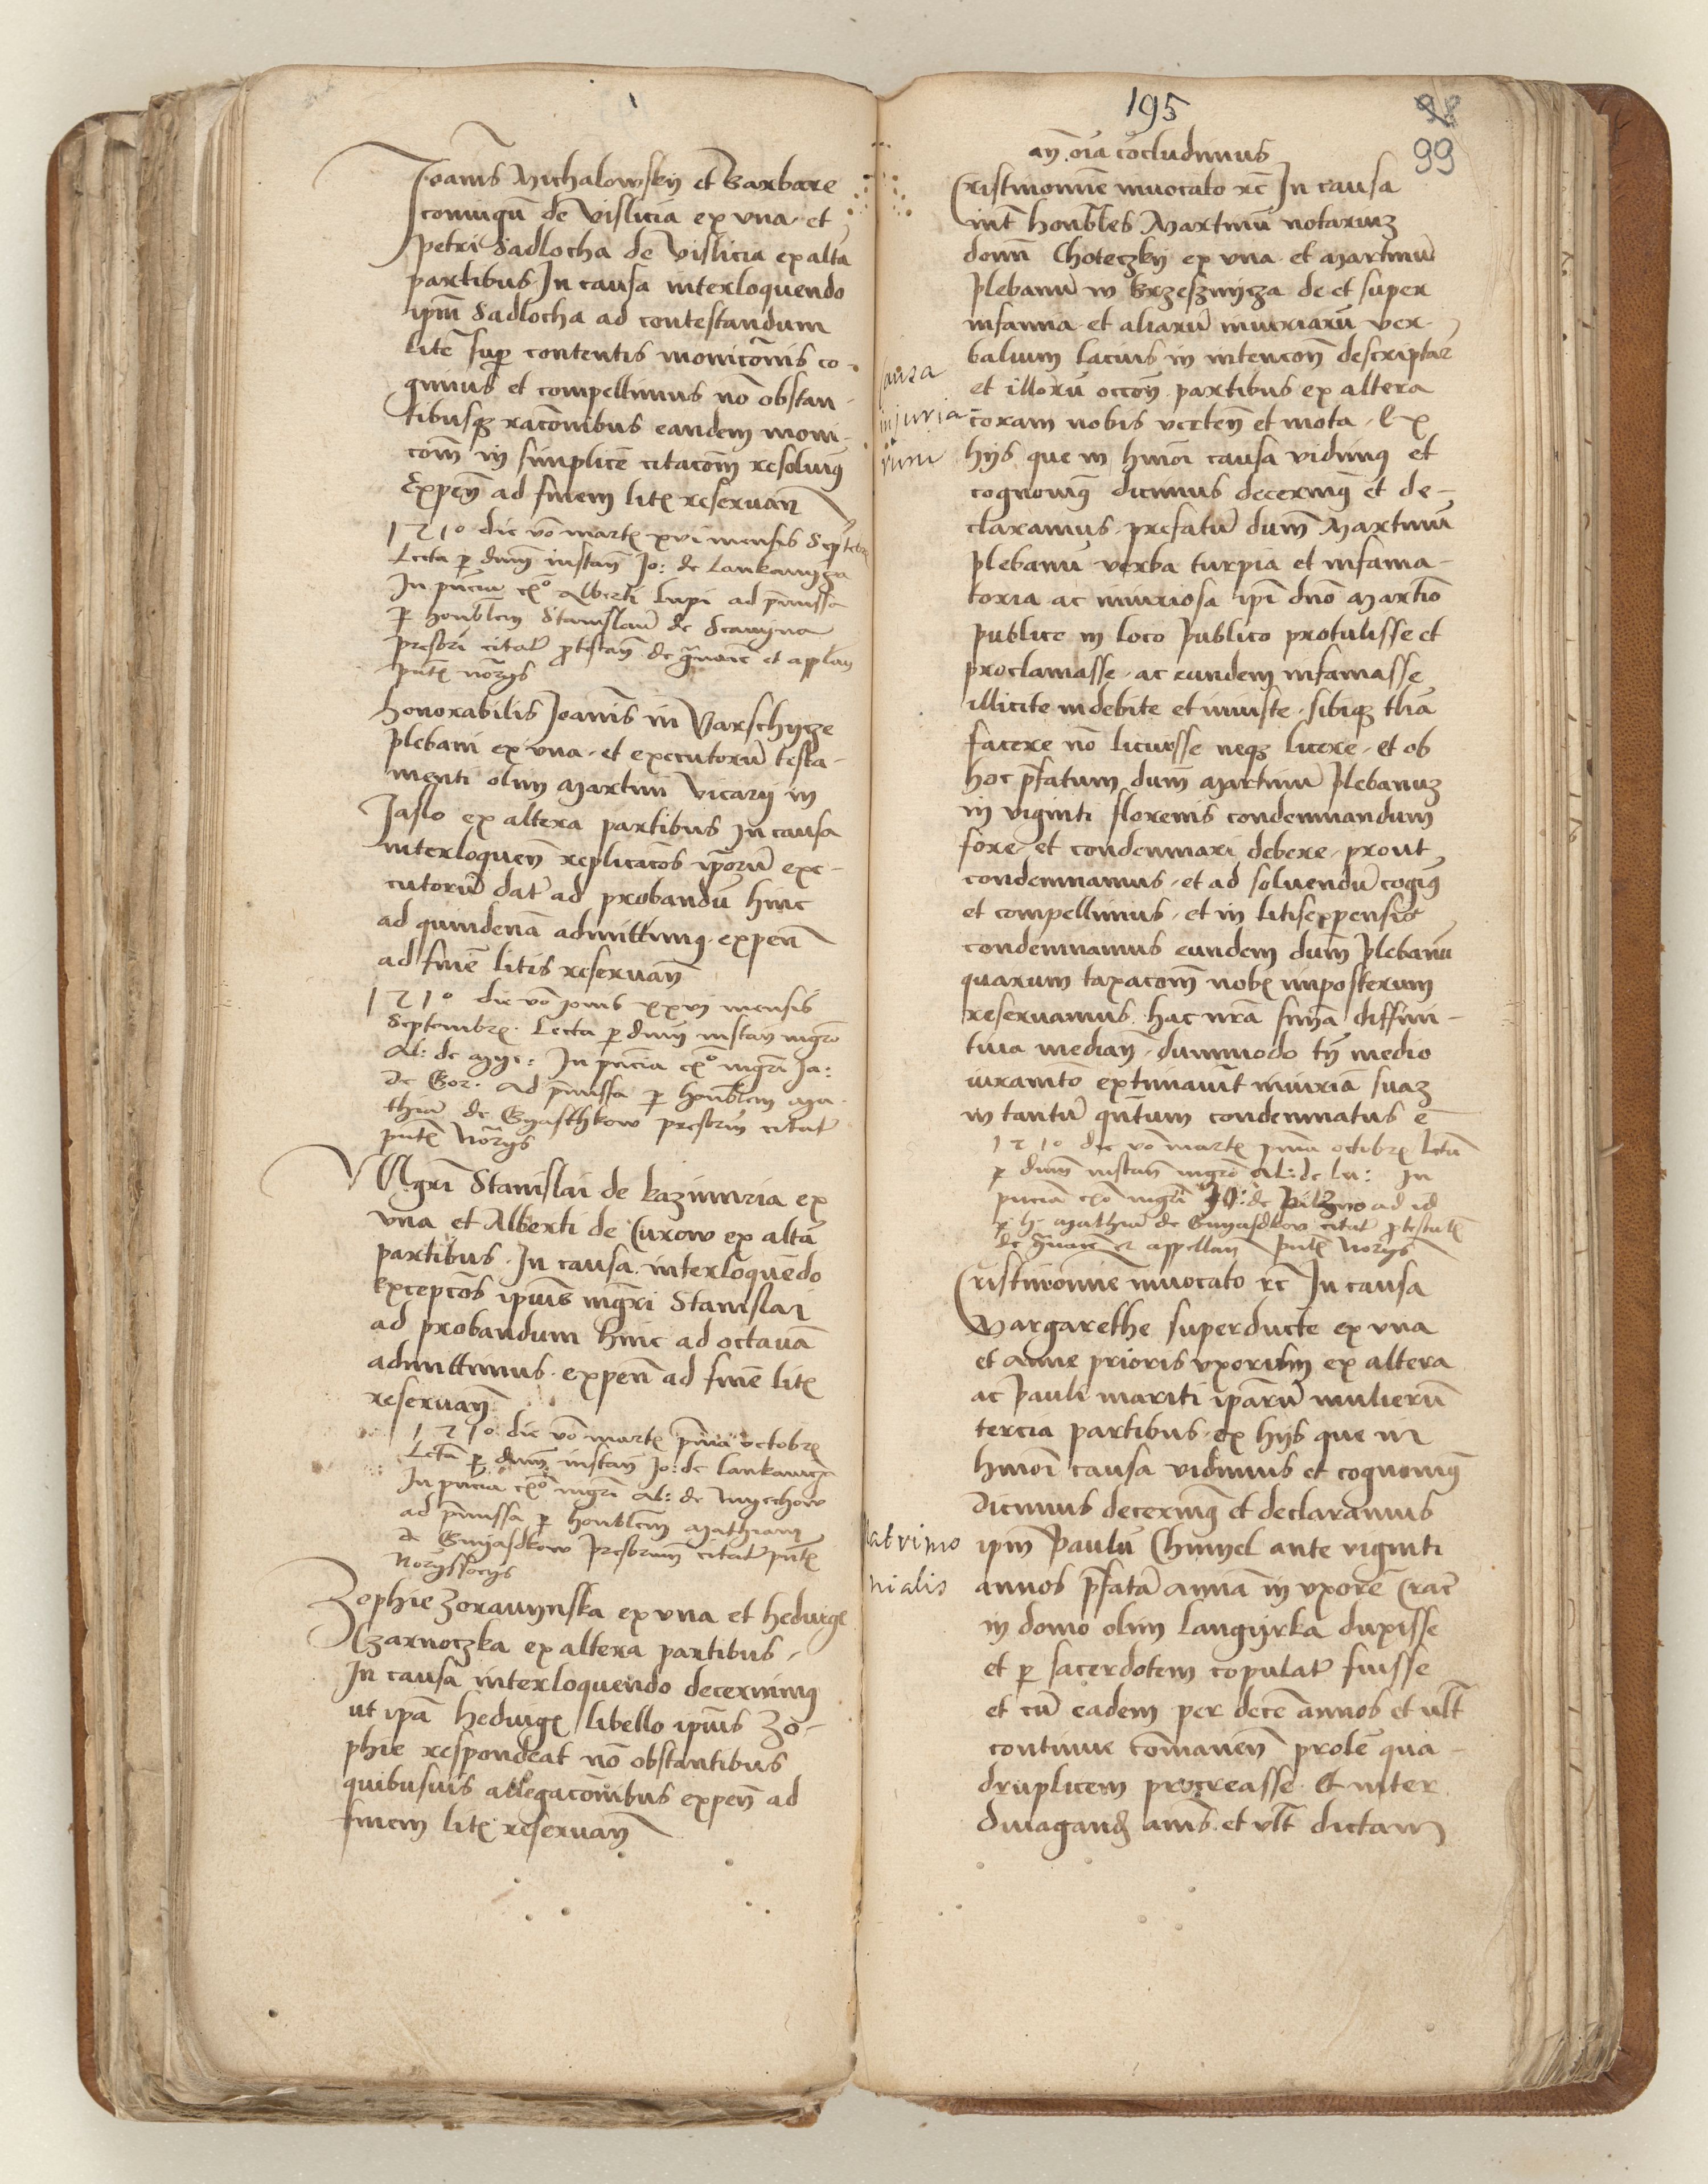 Joanis Michalowsky et Barbare
coniugū de Vislicia ex vna et
petri Sadlocha de Vislicia ex altā
partibus In causa interloquendo
ipm̄ Sadlocha ad contestandum
litē sup contentis monicōnis co-
gimus et compellimus nō obstan-
tibusqz racōnibus eandem moni-
com̄ in simplicē citacom̄ resoluimꝰ
Expen̄ ad finem litꝭ reseruan̄
1510 die vō martꝭ xvi mensis Septebr
Lecta p dnm̄ instan̄ Jo: de Lankawycza
In pn̄cia cꝭo Alberti Lupi ad p̄missa
p honblem Stanislaū de Scawyna
presbrī citatꝰ ptestan̄ de gͬuaīe et applan̄
pn̄tꝭ norijs
honorabilis Joanis in Varschycze
plebani ex vna et executorū testa-
menti olim Martini vicarij in
Jaslo ex altera partibus In causa
interloquen̄ replicacōs ip̄orū exe-
cutorū datꝭ ad probandū hinc
ad quindenā admittimꝰ expen̄
ad finē litis reseruan̄
1510 die vō Jouis xxvj mensis
Septembrꝭ Lecta p dnm̄ instan̄ mgrō
Al: de Myc: In pn̄cia cꝭo mgrī Ja:
de Gor: Ad p̄missa p honblem Ma-
thiā de Gnyasthkow presbrm̄ citatꝰ
pn̄tꝭ Norijs
Mgrī Stanislai de Kazimiria ex
vna et Alberti de Curow ex altā
partibus In causa interloquēdo
excepcōs ipius mgrī Stanislai
ad probandum hinc ad octauā
admittimus expen̄ ad finē litꝭ
reseruan̄
1510 die vō martꝭ p̄ma octobrꝭ
Lctā p dnm̄ instan̄ Jo: de Lankawicza
In pn̄cia cꝭo mgrī Al: de Myechow
ad p̄missa p honblem Mathiam
de Gnyasdkow presbrum citatꝰ pn̄tꝭ
Norijssocijs
Zophie Zorawynska ex vna et hedwige
Czarnoczka ex altera partibus
In causa interloquendo decernimꝰ
ut ipā hedwigꝭ libello ipius Zo-
phie respondeat nō obstantibus
quibusuis allegacōnibus expen̄ ad
finem litꝭ reseruan̄
195
98
99
an̄ oīa cōcludimus
Cristinomīe inuocato rc̄ In causa
int̄ honbles Martinū notariuz
domī Choteczky ex vna et Martinū
plebanū in Brzesznycza de et super
infamia et aliarū iniuriarū ver-
balium lacius in intencōn̄ descriptaꝝ
et illorū occōn̄ partibus ex altera
coram nobis verten̄ et mota Ex
hijs que in hmōi causa vidimꝰ et
cognouimꝰ dicimus decernimꝰ et de-
claramus prefatū dnm̄ Martinū
plebanū verba turpia et infama-
toria ac iniuriosa ip̄i dnō Martīo
publice in loco publico protulisse et
proclamasse ac eundem infamasse
illicite indebite et iniuste sibiqz thā
facere nō licuisse neqz licere et ob
hoc p̄fatum dnm̄ Martinū plebanuz
in viginti florenis condemnandum
fore et condemnari debere prout
condemnamus et ad soluendū cogimꝰ
et compellimus et in litisexpensis
condemnamus eundem dnm̄ plebanū
quarum taxacom̄ nobꝭ imposterum
reseruamus hac nrā snīa diffini-
tiua median̄ dummodo tn̄ medio
iuramto extimauit iniuriā suaz
in tantū qn̄tum condemnatus ē
1510 die vō martꝭ p̄ma octobrꝭ lctā
p dnm̄ instan̄ mgrō Al: de Lu: In
pn̄cia cꝭo mgrī Jo: de Pilzno ad id
p h. Mathiā de Gnyasdkow citatꝰ ptestatꝭ
de gͬuaīe et appellan̄ pn̄tꝭ Norijs
Cristinomine inuocato rc̄ In causa
Margarethe superducte ex vna
et Anne prioris vxorum ex altera
ac Pauli mariti ip̄arū mulierū
tercia partibus ex hijs que in
hmōi causa vidimus et cognouimꝰ
dicimus decernimꝰ et declaramus
ipm̄ Paulū Chmyel ante viginti
annos p̄fatā annā in vxorē Crac̄
in domo olim Langyrka duxisse
et p sacerdotem copulatū fuisse
et cū eadem per decē annos et vlt̄
continue cōmanen̄ prolē qua-
druplicem procreasse Et inter
diuagand̄ annis et vlt̄ dictam
causa
injuria
rum
Matrimo
nialis